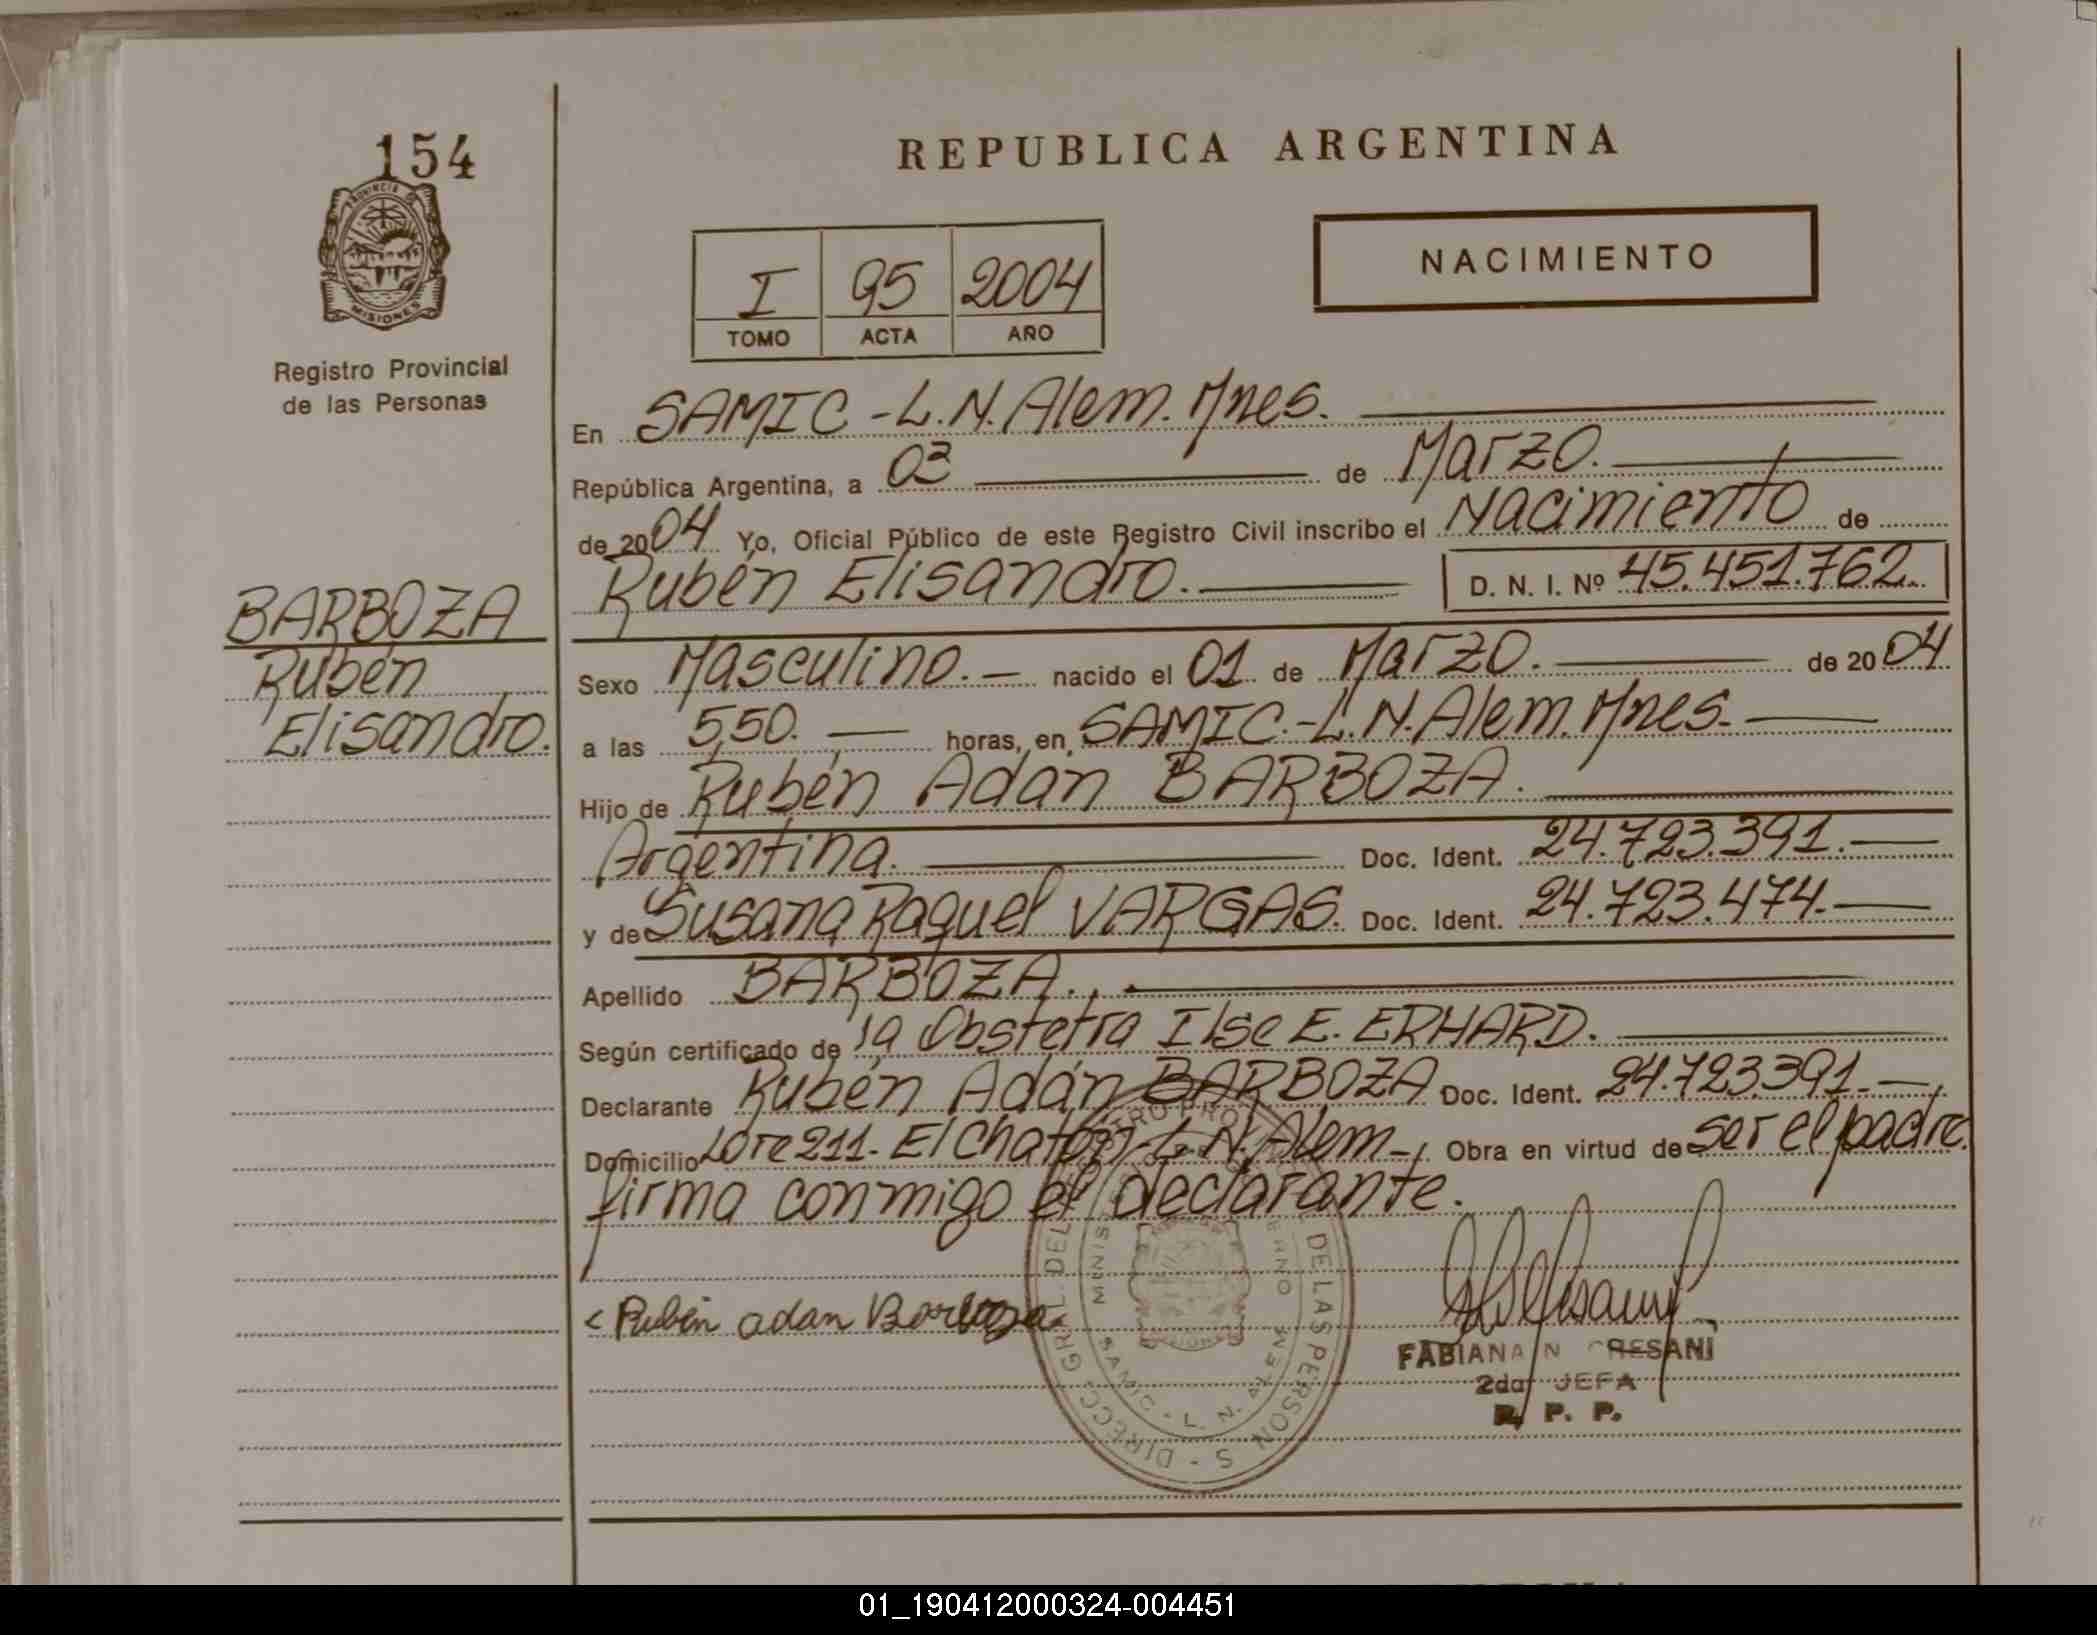 154
PROVINCIA DE
MISIONES
Registro Provincial
de las Personas
BARBOZA
Rubén
Elisandro.
REPUBLICA ARGENTINA
I 95 2004
TOMO ACTA AÑO
NACIMIENTO
En SAMIC - L.N. Alem. Mnes.
República Argentina, a 03 de Marzo.
de 2004 Yo, Oficial Público de este Registro Civil inscribo el Nacimiento de
Rubén Elisandro. D. N. I. Nº 45.451.762.
Sexo Masculino. nacido el 01 de Marzo. de 2004
a las 5,50. horas, en SAMIC.- L.N. Alem. Mnes.
Hijo de Rubén Adán BARBOZA.
Argentina. Doc. Ident. 24.723.391.
y de Susana Raquel VARGAS. Doc. Ident. 24.723.474.
Apellido BARBOZA.
Según certificado de la Obstetra Ilse E. ERHARD.
Declarante Rubén Adán BARBOZA Doc. Ident. 24.723.391.
Domicilio Lote 211. El Chatón L.N. Alem Obra en virtud de ser el padre.
firma conmigo el declarante.
Rubén adan Barboza
FABIANA N CRESANI
2da JEFA
R. P. P.
DIRECC GRAL. DEL DE LAS PERSON S
SAMIC - L. N. ALEM
01_190412000324-004451